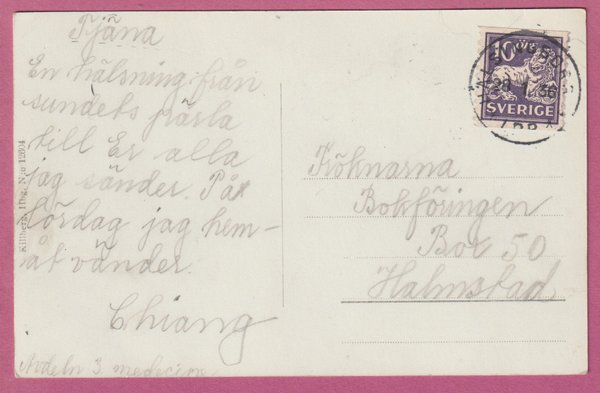 Tjäna
En hälsning från
sundets pärla
till Er alla
jag sänder. På
lördag jag hem-
åt vänder.
Chiang
Avdeln 3. medecin
Killberg, Hbg. N:o 12604
10
SVERIGE
Fröknarna
Bokföringen
Box 50
Halmstad